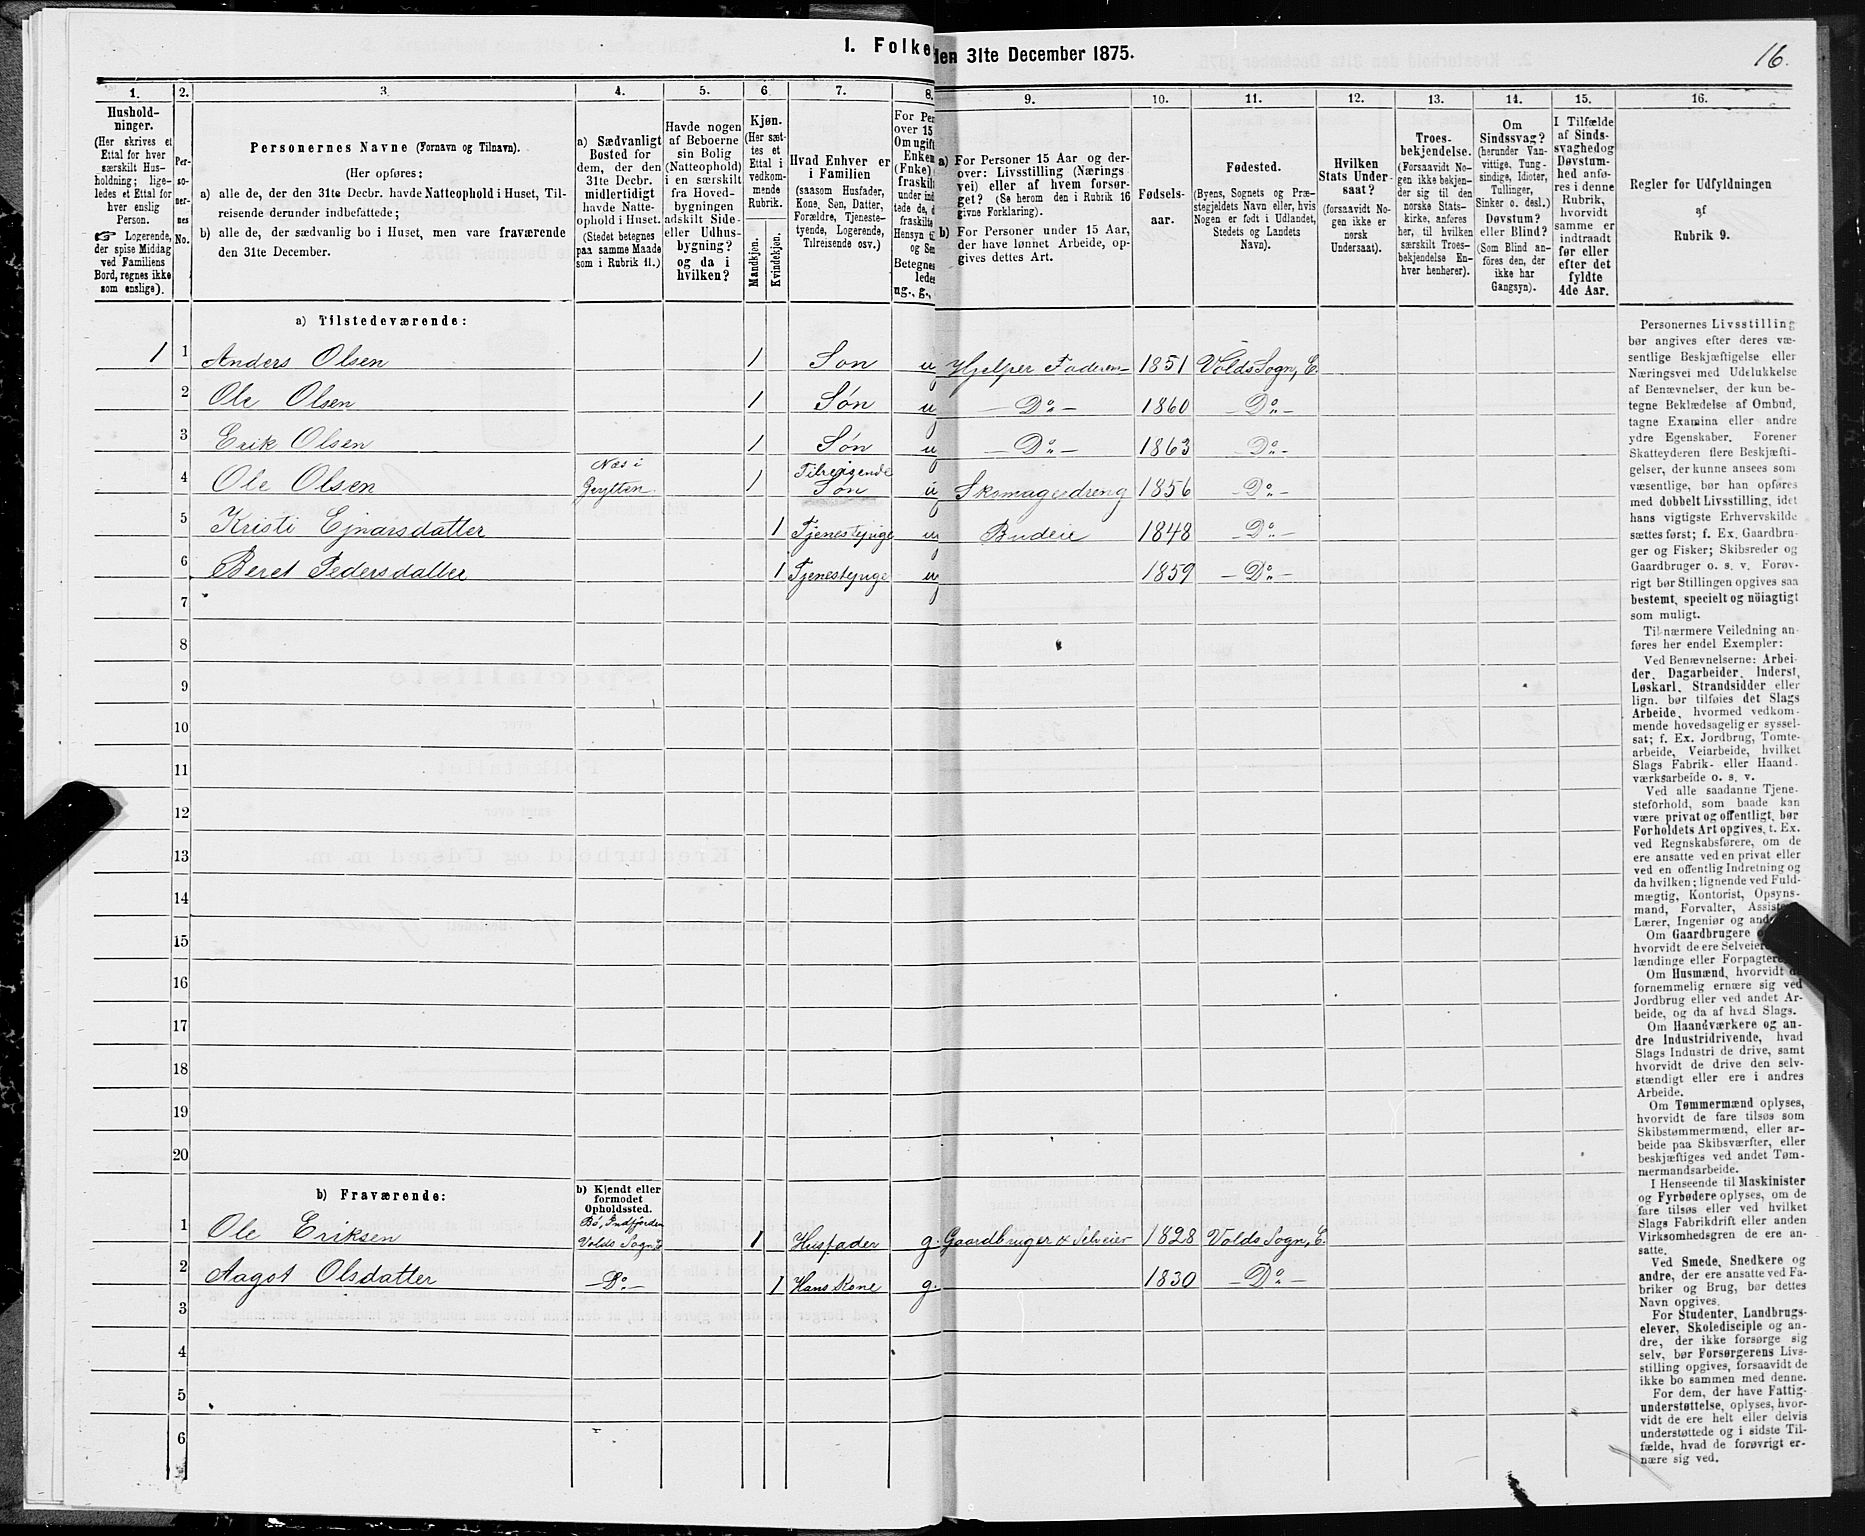 I. Folke
den 31te December 1875.
16.
1.
2.
3.
4.
5.
6
7.
8.
9.
10.
11.
12.
13.
14.
15.
16.
Hushold-
ninger.
(Her skrives et
Ettal for hver
særskilt Hus-
holdning; lige-
ledes et Ettal for
hver enslig
Person.
☞ Logerende,
der spise Middag
ved Familiens
Bord, regnes ikke
som enslige).
Per-
so-
ner-
nes
No.
Personernes Navne (Fornavn og Tilnavn).
(Her opføres:
a) alle de, der den 31te Decbr. havde Natteophold i Huset, Til-
reisende derunder indbefattede;
b) alle de, der sædvanlig bo i Huset, men vare fraværende
den 31te December.
a) Sædvanligt
Bosted for
dem, der den
31te Decbr.
midlertidigt
havde Natte-
ophold i Huset.
(Stedet betegnes
paa samme Maade
som i Rubrik 11.)
Havde nogen
af Beboerne
sin Bolig
(Natteophold)
i en særskilt
fra Hoved-
bygningen
adskilt Side-
eller Udhus-
bygning?
og da i
hvilken?
Kjøn.
(Her sæt-
tes et
Ettal i
vedkom-
mende
Rubrik.
Mandkjøn.
Kvindekjøn.
Hvad Enhver er
i Familien
(saasom Husfader,
Kone, Søn, Datter,
Forældre, Tjeneste-
tyende, Logerende,
Tilreisende osv.)
For Per
over 15
Om ugift
Enkem
(Fnke)
fraskilt
under ind
tede de, d
fraskilte
Hensyn ti
og Sen
Betegnes
ledes
ug., g.,
a) For Personer 15 Aar og der-
over: Livsstilling (Nærings-
vei) eller af hvem forsør-
get? (Se herom den i Rubrik 16
givne Forklaring).
b) For Personer under 15 Aar,
der have lønnet Arbeide, op-
gives dettes Art.
Fødsels-
aar.
Fødested.
(Byens, Sognets og Præ-
stegjeldets Navn eller, hvis
Nogen er født i Udlandet,
Stedets og Landets
Navn).
Hvilken
Stats Under-
saat?
(forsaavidt No-
gen ikke er
norsk
Undersaat).
Troes-
bekjendelse.
(Forsaavidt No-
gen ikke bekjen-
der sig til den
norske Stats-
kirke, anføres
her, til hvilken
særskilt Troes-
bekjendelse En-
hver henhører).
Om
Sindssvag?
(herunder Van-
vittige, Tung-
sindige, Idioter,
Tullinger,
Sinker o. desl.)
Døvstum?
eller Blind?
(Som Blind an-
føres den, der
ikke har
Gangsyn).
I Tilfælde
af Sinds-
svaghedog
Døvstum-
hed anfø-
res i denne
Rubrik,
hvorvidt
samme er
indtraadt
før eller
efter det
fyldte
4de Aar.
Regler for Udfyldningen
af
Rubrik 9.
a) Tilstedeværende:
1 1 Anders Olsen 1 Søn ug Hjelper Faderen 1851 Volds Sogn, E.
2 Ole Olsen 1 Søn ug — Do — 1860 — Do —
3 Erik Olsen 1 Søn ug — Do — 1863 — Do —
Næs i Tilreisende
4 Ole Olsen Grytten. 1 Søn ug Skomagerdreng 1856 — Do —
5 Kristi Ejnarsdatter 1 Tjenestepige ug Budeie 1848 — Do —
6 Beret Pedersdatter 1 Tjenestepige ug 1859 — Do —
7
8
9
10
11
12
13
14
15
16
17
18
19
20
b) Fraværende:
b) Kjendt eller
formodet
Opholdssted.
Bö, Indfjorden
1 Ole Eriksen Volds Sogn, E 1 Husfader g. Gaardbruger & Selveier 1828 Volds Sogn, E.
2 Aagot Olsdatter — Do — 1 Hans Kone g. 1830 — Do —
3
4
5
6
Personernes Livsstilling
bør angives efter deres væ-
sentlige Beskjæftigelse eller
Næringsvei med Udelukkelse
af Benævnelser, der kun be-
tegne Beklædelse af Ombud,
tagne Examina eller andre
ydre Egenskaber. Forener
Skatteyderen flere Beskjæfti-
gelser, der kunne ansees som
væsentlige, bør han opføres
med dobbelt Livsstilling, idet
hans vigtigste Erhvervskilde
sættes først; f. Ex. Gaardbru-
ger og Fisker; Skibsreder og
Gaardbruger o. s. v. Forøv-
rigt bør Stillingen opgives saa
bestemt, specielt og nöiagtigt
som muligt.
Til nærmere Veiledning an-
føres her endel Exempler:
Ved Benævnelserne: Arbei-
der, Dagarbeider, Inderst,
Løskarl, Strandsidder eller
lign. bør tilføies det Slags
Arbeide, hvormed vedkom-
mende hovedsagelig er syssel-
sat; f. Ex. Jordbrug, Tomte-
arbeide, Veiarbeide, hvilket
Slags Fabrik- eller Haand-
værksarbeide o. s. v.
Ved alle saadanne Tjene-
steforhold, som baade kan
være privat og offentligt, bør
Forholdets Art opgives, t. Ex.
ved Regnskabsførere, om de
ere ansatte ved en privat eller
ved en offentlig Indretning og
da hvilken; lignende ved Fuld-
mægtig, Kontorist, Opsyns-
mand, Forvalter, Assistent,
Lærer, Ingeniør og andre.
Om Gaardbrugere
hvorvidt de ere Selveiere,
lændinge eller Forpagtere.
Om Husmænd, hvorvidt de
fornemmelig ernære sig ved
Jordbrug eller ved andet Ar-
beide, og da af hvad Slags.
Om Haandværkere og an-
dre Industridrivende, hvad
Slags Industri de drive, samt
hvorvidt de drive den selv-
stændigt eller ere i andres
Arbeide.
Om Tømmermænd oplyses,
hvorvidt de fare tilsøs som
Skibstømmermænd, eller ar-
beide paa Skibsværfter, eller
beskjæftiges ved andet Tøm-
mermandsarbeide.
I Henseende til Maskinister
og Fyrbødere oplyses, om de
fare tilsøs eller ved hvilket
Slags Fabrikdrift eller anden
Virksomhedsgren de ere an-
satte.
Ved Smede, Snedkere og
andre, der ere ansatte ved Fa-
briker og Brug, bør dettes
Navn opgives.
For Studenter, Landbrugs-
elever, Skoledisciple og an-
dre, der ikke forsørge sig
selv, bør Forsørgerens Livs-
stilling opgives, forsaavidt de
ikke bo sammen med denne.
For dem, der have Fattig-
understøttelse, oplyses, hvor-
vidt de ere helt eller delvis
understøttede og i sidste Til-
fælde, hvad de forøvrigt er-
nære sig ved.